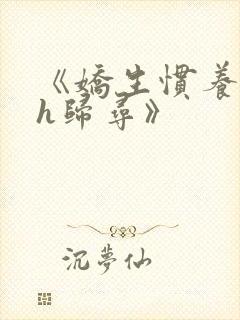 《嬌生慣養
h歸尋》
沉夢仙